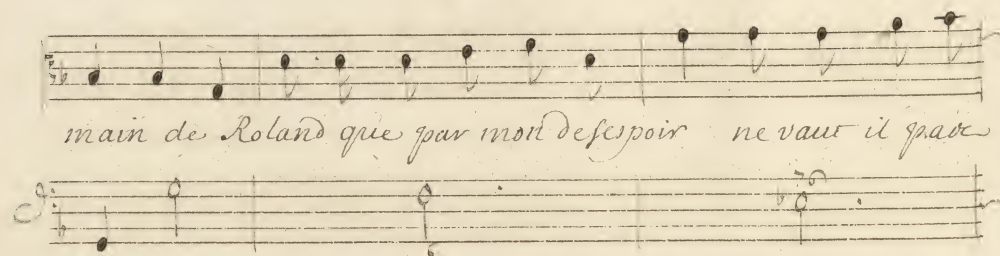 main de Roland que par mon desespoir ne vaut il pas